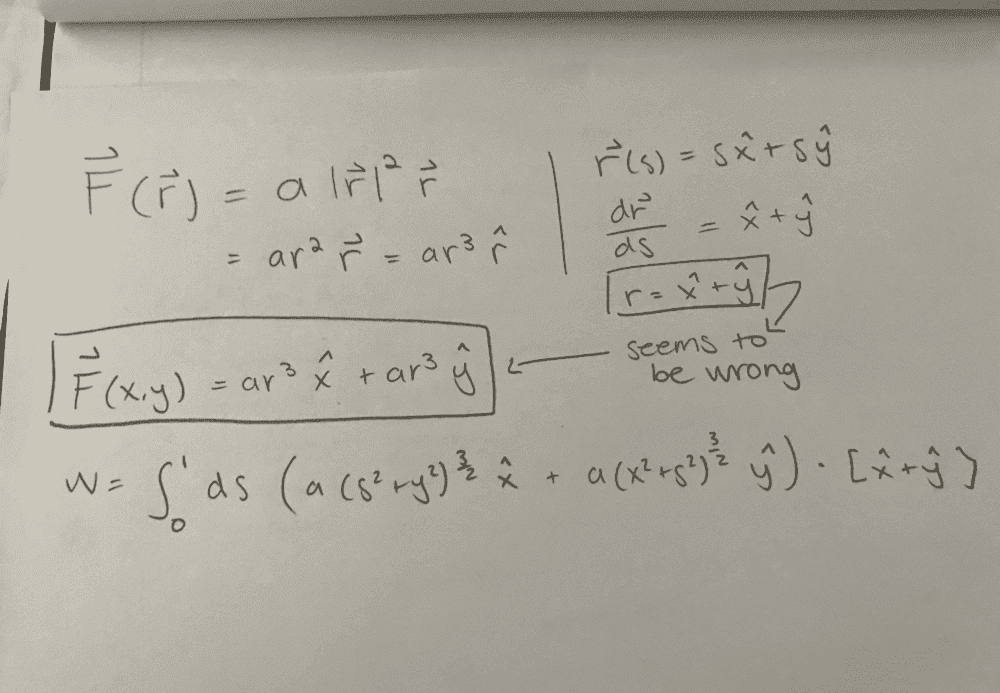 F⃗(r⃗) = a |r⃗|² r⃗
= ar² r⃗ = ar³ r̂
r⃗(s) = sx̂ + sŷ
dr⃗/ds = x̂ + ŷ
r = x̂ + ŷ
seems to
be wrong
F⃗(x,y) = ar³ x̂ + ar³ ŷ
W = ∫₀¹ ds (a (s²+y²)^(3/2) x̂ + a(x²+s²)^(3/2) ŷ) · [x̂+ŷ]